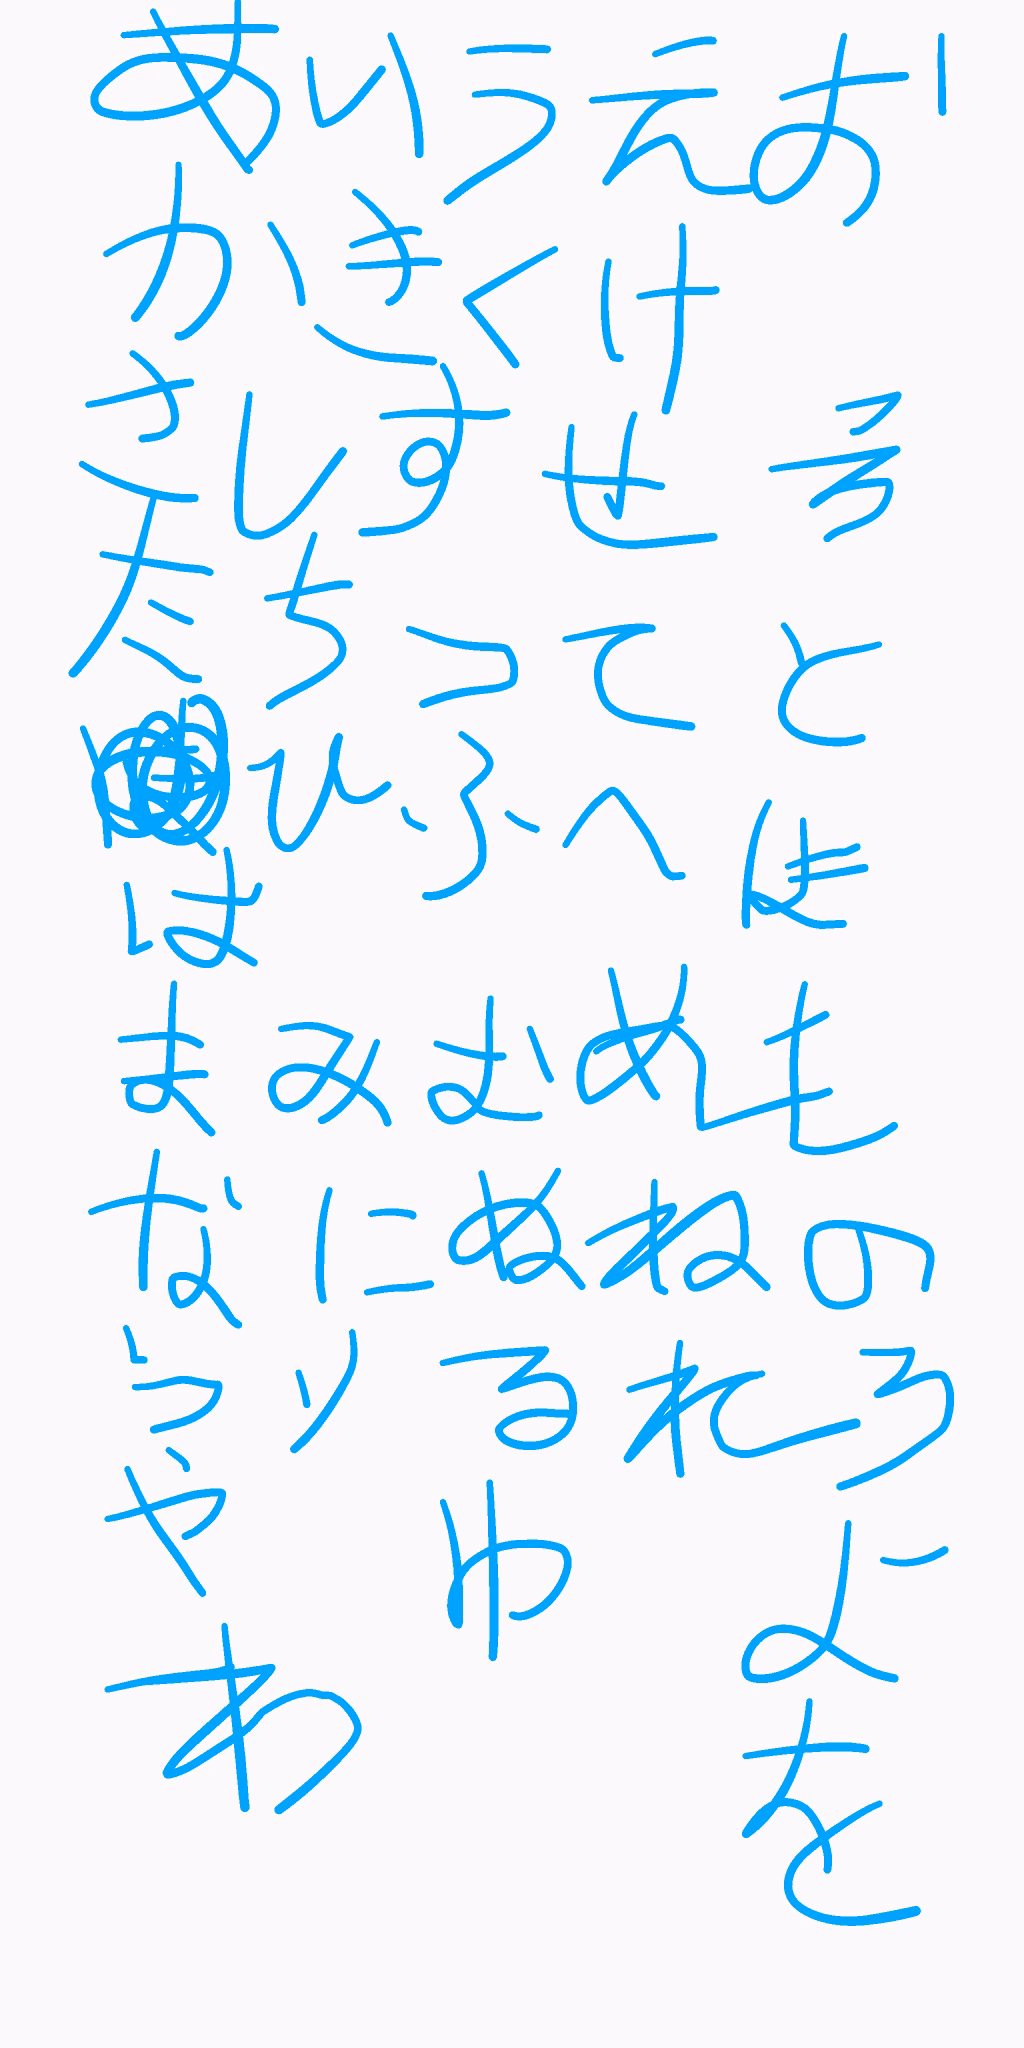 あいうえお
かきくけ
さしすせそ
たちつてと
ひふへほ
は
まみむめも
なにぬねの
らりるれろ
やゆよ
わを